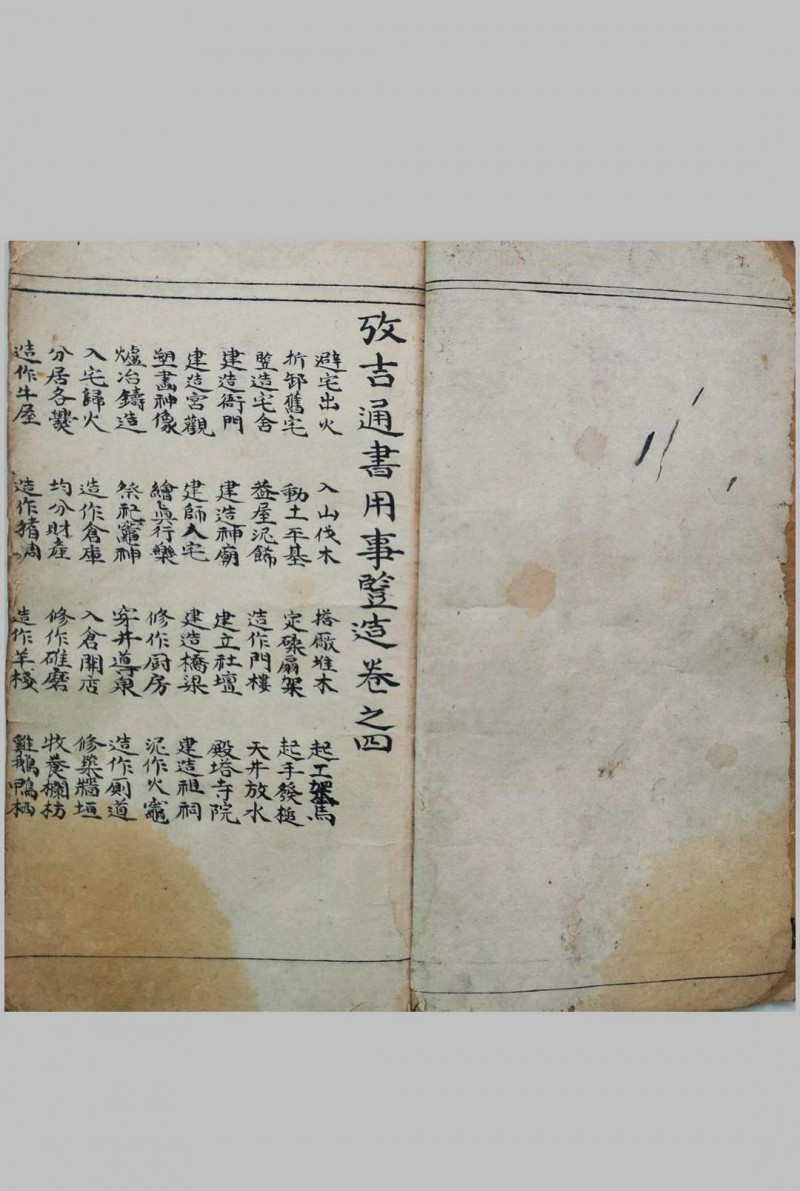 攷吉通書用事竪造卷之四
避宅出火 入山伐木 搭廠堆木 起工架馬
折卸舊宅 動土平基 定磉扇架 起手發槌
竪造宅舍 蓋屋泥飾 造作門樓 天井放水
建造衙門 建造神廟 建立社壇 殿塔寺院
建造宮觀 建師人宅 建造橋梁 建造祖祠
塑畵神像 繪眞行樂 修作厨房 泥作火竈
爐冶鑄造 祭祀竈神 穿井導泉 造作厠道
入宅歸火 造作倉庫 入倉開店 修築牆垣
分居各爨 均分財產 修作碓磨 牧養欄枋
造作牛屋 造作猪 造作羊棧 雞鵝鴨栖